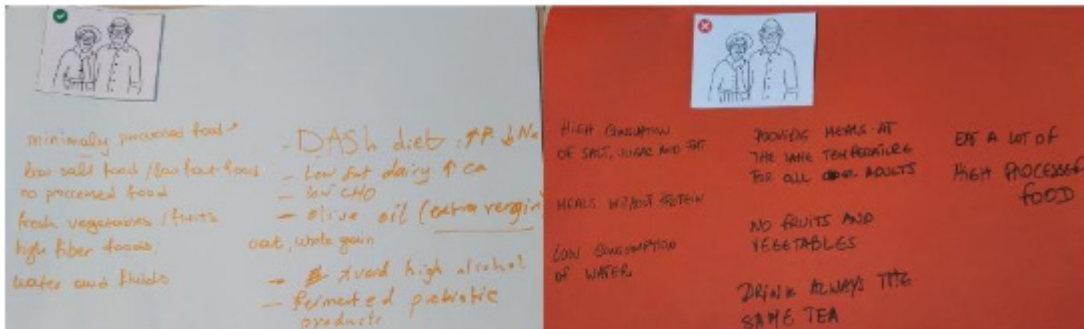 minimaly processed food
low salt food / low fat foods
no proccessed food
fresh vegetables / fruits
high fiber foods
water and fluids
- DASh diet : ↑P ↓Na
- Low fat dairy ↑ ca
- low CHO
- olive oil (extra vergin
oat, whole grain
- Avoid high alcohol
- Fermented prebiotic
products
HIGH CONSUMATION
OF SALT, SUGAR AND FAT
MEALS WITHOUT PROTEIN
LOW CONSUMPTION
OF WATER
MEALS AT
THE SAME TEMPERATURE
FOR ALL ADULTS
NO FRUITS AND
VEGETABLES
DRINK ALWAYS THE
SAME TEA
EAT A LOT OF
HIGH PROCESSED
FOOD